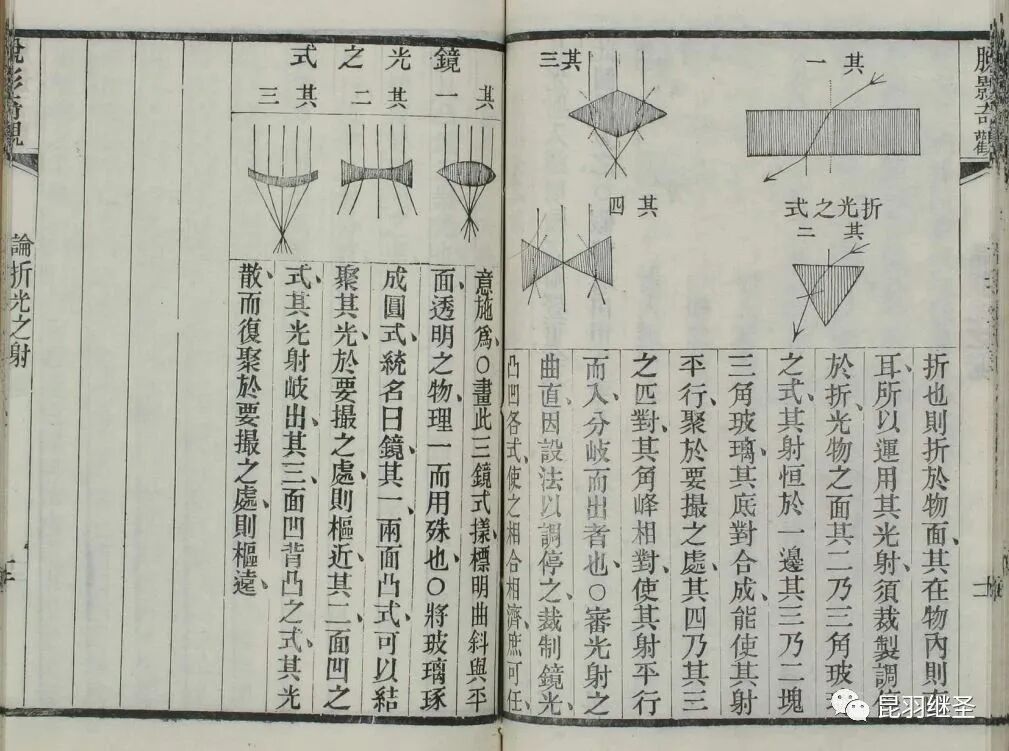 脫影奇觀
其一
折光之式
其二
其三
其四
折也則折於物面、其在物內則
耳、所以運用其光射、須裁製調
於折光物之面其二乃三角玻
之式、其射恒於一邊其三乃二塊
三角玻璃、其底對合成、能使其射
平行、聚於要撮之處、其四乃其三
之匹對、其角峰相對、使其射平行
而入、分岐而出者也、○審光射之
曲直、因設法以調停之、裁制鏡光、
凸凹各式、使之相合相濟、庶可任、
鏡光之式
其一
其二
其三
意施爲、○畫此三鏡式樣、標明曲斜與平
面、透明之物、理一而用殊也、○將玻璃琢
成圓式、統名曰鏡其一、兩面凸式、可以結
聚其光、於要撮之處、則樞近其二、面凹之
式、其光射岐出、其三、面凹背凸之式、其光
散而復聚於要撮之處、則樞遠、
論折光之射
昆羽继圣